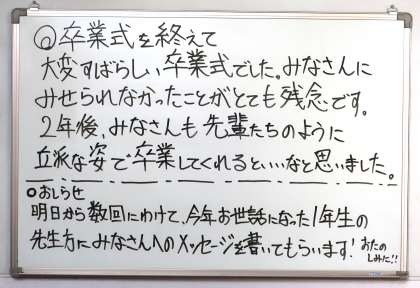 ◎卒業式を終えて
大変すばらしい卒業式でした。みなさんに
みせられなかったことがとても残念です。
2年後、みなさんも先輩たちのように
立派な姿で卒業してくれるといいなと思いました。
○おしらせ
明日から数回にわけて、今年お世話になった1年生の
先生方にみなさんへのメッセージを書いてもらいます!おたのしみに!!